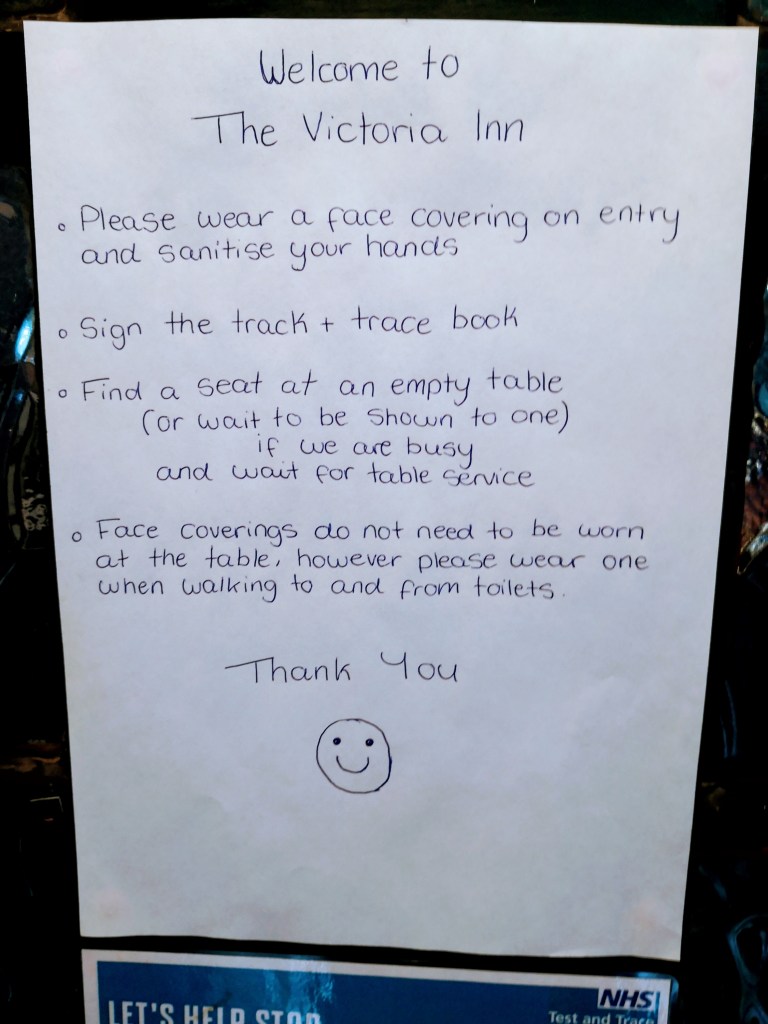 Welcome to
The Victoria Inn
Please wear a face covering on entry
and sanitise your hands
Sign the track + trace book
Find a seat at an empty table
(or wait to be shown to one)
if we are busy
and wait for table service
Face coverings do not need to be worn
at the table, however please wear one
when walking to and from toilets.
Thank You
NHS
LET'S HELP STOP
Test and Trace